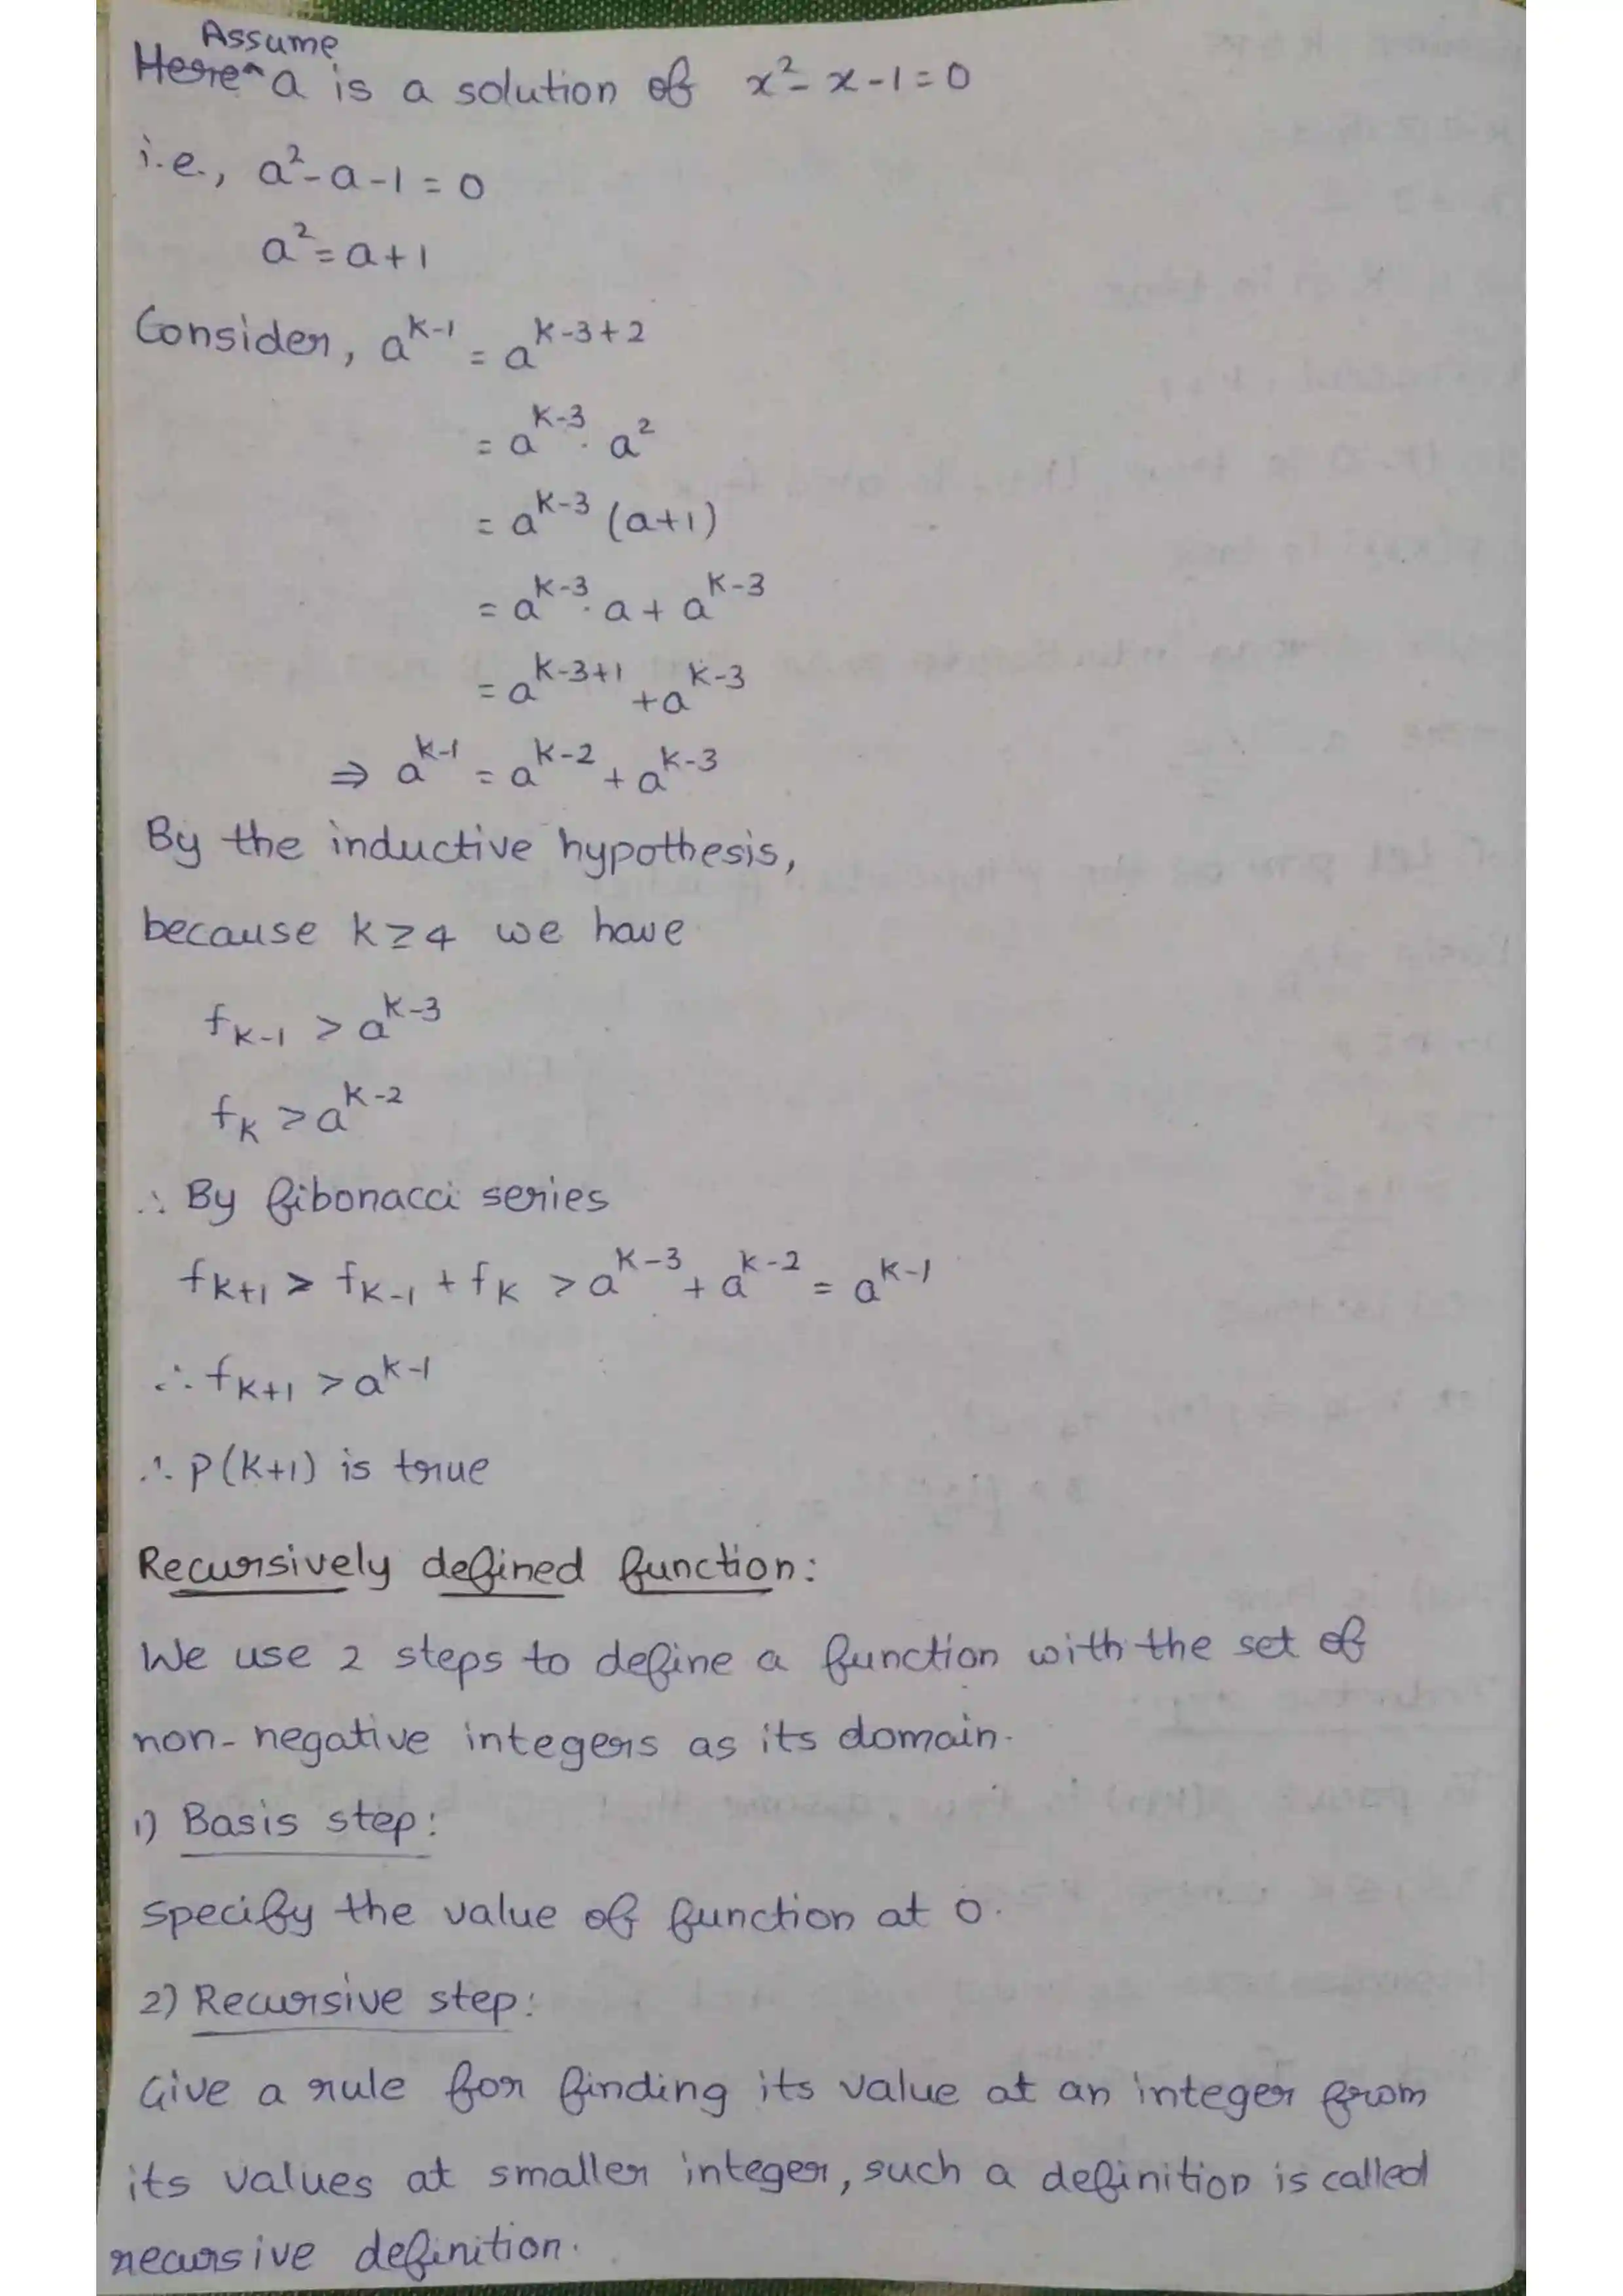 Assume
Here a is a solution of x² - x - 1 = 0
i.e., a² - a - 1 = 0
a² = a + 1
Consider, a^{k-1} = a^{k-3+2}
= a^{k-3} · a²
= a^{k-3} (a+1)
= a^{k-3} · a + a^{k-3}
= a^{k-3+1} + a^{k-3}
⇒ a^{k-1} = a^{k-2} + a^{k-3}
By the inductive hypothesis,
because k ≥ 4 we have
f_{k-1} > a^{k-3}
f_k > a^{k-2}
∴ By fibonacci series
f_{k+1} > f_{k-1} + f_k > a^{k-3} + a^{k-2} = a^{k-1}
∴ f_{k+1} > a^{k-1}
∴ P(k+1) is true
Recursively defined function:
We use 2 steps to define a function with the set of
non-negative integers as its domain.
1) Basis step:
specify the value of function at 0.
2) Recursive step:
Give a rule for finding its value at an integer from
its values at smaller integer, such a definition is called
recursive definition.